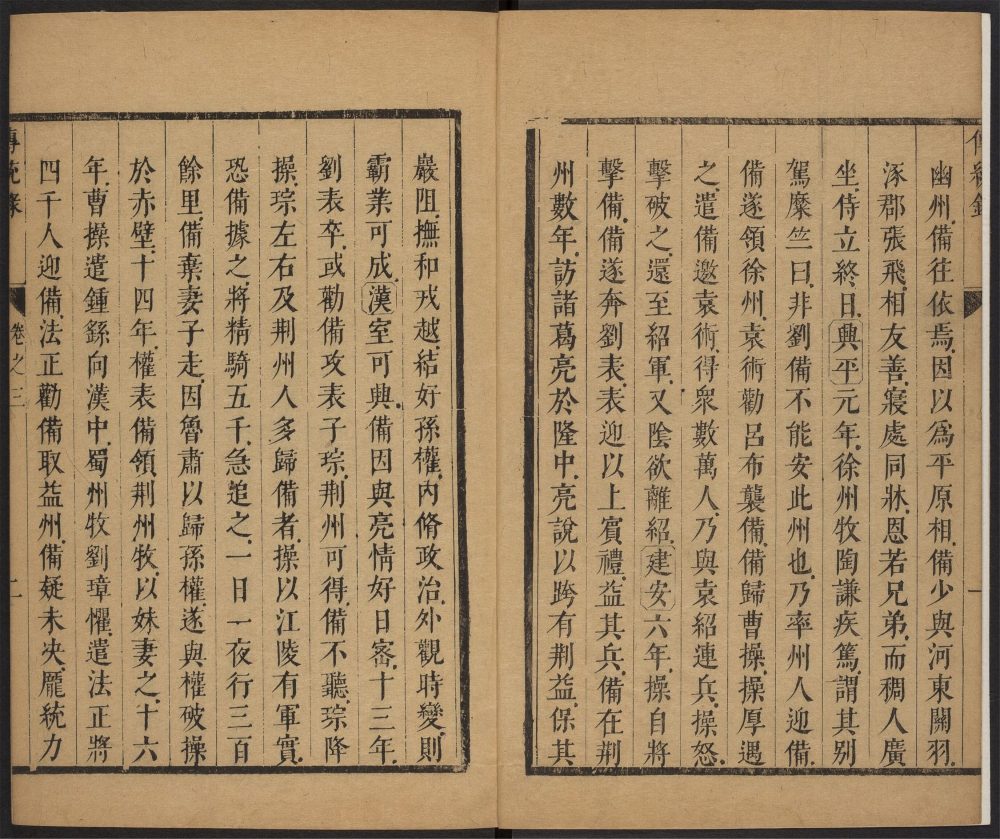 幽州.備往依焉.因以爲平原相.備少與河東關羽.
涿郡張飛.相友善.寢處同牀.恩若兄弟.而稠人廣
坐.侍立終日.興平元年.徐州牧陶謙疾篤.謂其别
駕糜竺曰.非劉備不能安此州也.乃率州人迎備.
備遂領徐州.袁術勸呂布襲備.備歸曹操.操厚遇
之.遣備邀袁術.得衆數萬人.乃與袁紹連兵.操怒.
擊破之.還至紹軍.又陰欲離紹.建安六年.操自將
擊備.備遂奔劉表.表迎以上賓禮.益其兵.備在荆
州數年.訪諸葛亮於隆中.亮說以跨有荆益.保其
巖阻.撫和戎越.結好孫權.内脩政治.外觀時變.則
霸業可成.漢室可興.備因與亮情好日密.十三年.
劉表卒.或勸備攻表子琮.荆州可得.備不聽.琮降
操.琮左右及荆州人多歸備者.操以江陵有軍實.
恐備據之.將精騎五千.急追之.一日一夜行三百
餘里.備棄妻子走.因魯肅以歸孫權.遂與權破操
於赤壁.十四年.權表備領荆州牧.以妹妻之.十六
年.曹操遣鍾繇向漢中.蜀州牧劉璋懼.遣法正將
四千人迎備.法正勸備取益州.備疑未决.龐統力
卷之三
二